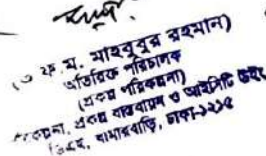 মাহবুবুর রহমান)
অতিরিক্ত পরিচালক
(প্রকল্প পরিকল্পনা)
পরিকল্পনা, প্রকল্প বাস্তবায়ন ও আইসিটি উইং
ডিএই, খামারবাড়ি, ঢাকা-১২১৫